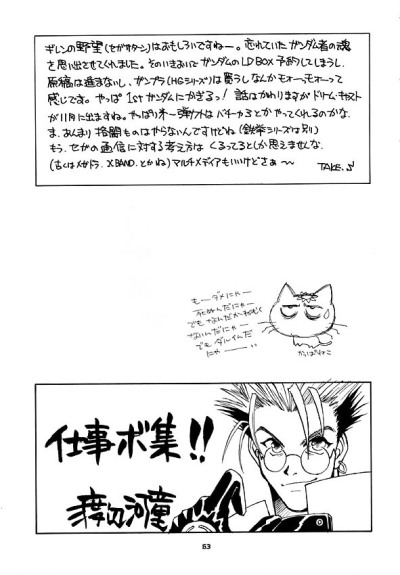 ギレンの野望(セガサターン)はおもしろいですねー。忘れていたガンダム者の魂
を思い出させてくれました。そのいきおいでガンダムのLD BOX 予約してしまうし、
原稿は進まないし、ガンプラ(HGシリーズ)は買うしなんかモォー、モォーって
感じです。やっぱ 1stガンダムにかぎるっ! 話はかわりますがドリームキャスト
が11月に出ますね。やっぱり第一弾ソフトはバーチャ3とかやってくれるのかな。
ま、あんまり格闘ものはやらないんですけどね(鉄拳シリーズは別)
もう、セガの通信に対する考え方は くるってるとしか思えませんな。
(古くはメガドラ、XBANDとかね)マルチメディアもいいけどさぁ〜
TAKE.S
もーダメにゃー
死ぬんだにゃー
でもなんだかねむく
ないんだにゃー
でもダルイんだ
にゃー――い
かっぱねこ
仕事ボ集!!
渡辺河童
63